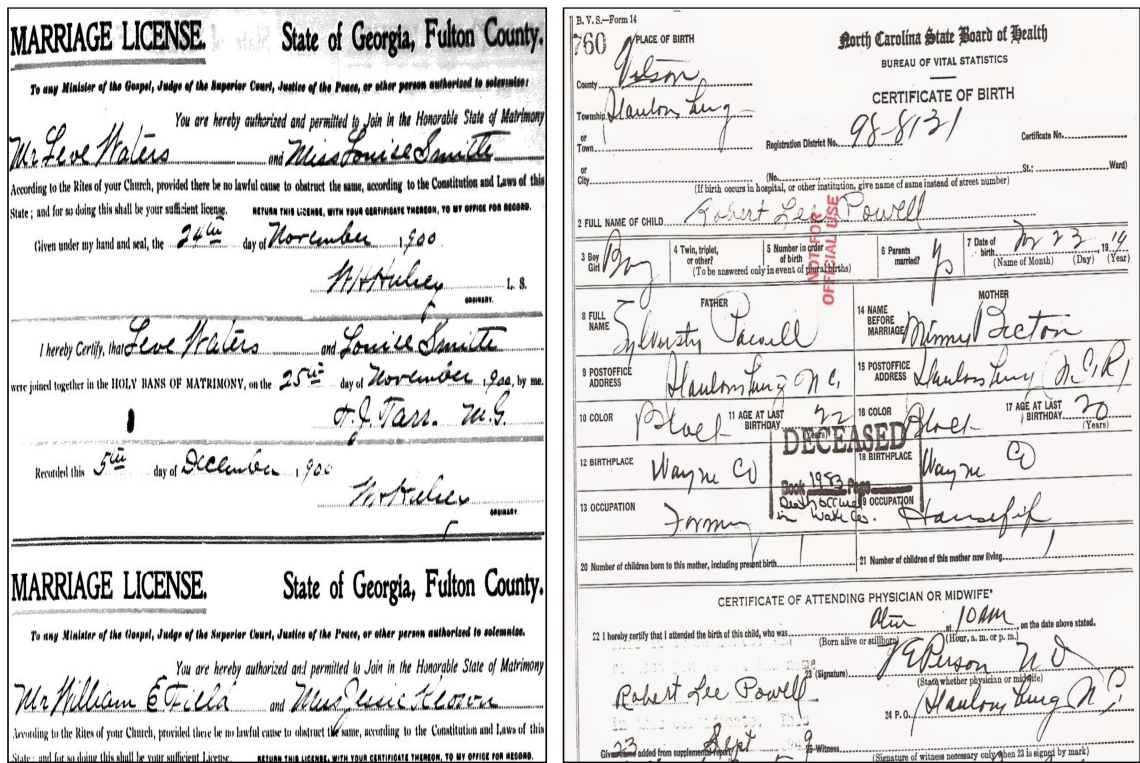 MARRIAGE LICENSE. State of Georgia, Fulton County.
To any Minister of the Gospel, Judge of the Superior Court, Justice of the Peace, or other person authorized to solemnize:
You are hereby authorized and permitted to Join in the Honorable State of Matrimony
Mr Leve Waters and Miss Louise Smith
According to the Rites of your Church, provided there be no lawful cause to obstruct the same, according to the Constitution and Laws of this
State; and for so doing this shall be your sufficient license. RETURN THIS LICENSE, WITH YOUR CERTIFICATE THEREON, TO MY OFFICE FOR RECORD.
Given under my hand and seal, the 24th day of November 1900
W H Hulsey L. S.
ORDINARY.
I hereby Certify, that Leve Waters and Louise Smith
were joined together in the HOLY BANS OF MATRIMONY, on the 25th day of November 1900, by me.
Tarr. M.G.
Recorded this 5th day of December 1900
W H Hulsey
ORDINARY.
MARRIAGE LICENSE. State of Georgia, Fulton County.
To any Minister of the Gospel, Judge of the Superior Court, Justice of the Peace, or other person authorized to solemnize.
You are hereby authorized and permitted to Join in the Honorable State of Matrimony
Mr William E Field and
According to the Rites of your Church, provided there be no lawful cause to obstruct the same, according to the Constitution and Laws of this
State; and for so doing this shall be your sufficient License. RETURN THIS LICENSE, WITH YOUR CERTIFICATE THEREON, TO MY OFFICE FOR RECORD.
B. V. S.—Form 14
760
PLACE OF BIRTH
North Carolina State Board of Health
BUREAU OF VITAL STATISTICS
CERTIFICATE OF BIRTH
County Wilson
Township
or
Town
Registration District No. 98-8131 Certificate No.
or
City (No. St.; Ward)
(If birth occurs in hospital, or other institution, give name of same instead of street number)
2 FULL NAME OF CHILD Robert Lee Powell
NOT FOR
OFFICIAL USE
3 Boy
Girl Boy
4 Twin, triplet,
or other?
5 Number in order
of birth
(To be answered only in event of plural births)
6 Parents
married?
7 Date of
birth 23 1914
(Name of Month) (Day) (Year)
FATHER
8 FULL
NAME Powell
MOTHER
14 NAME
BEFORE
MARRIAGE Minny
9 POSTOFFICE
ADDRESS N.C.
15 POSTOFFICE
ADDRESS N.C.
10 COLOR 11 AGE AT LAST
BIRTHDAY 22
(Years)
16 COLOR 17 AGE AT LAST
BIRTHDAY 20
(Years)
DECEASED
Book 1983 Page
Death occurred
in Wake Co.
12 BIRTHPLACE Wayne Co
18 BIRTHPLACE Wayne Co
13 OCCUPATION
19 OCCUPATION
20 Number of children born to this mother, including present birth 1
21 Number of children of this mother now living 1
CERTIFICATE OF ATTENDING PHYSICIAN OR MIDWIFE*
22 I hereby certify that I attended the birth of this child, who was at 10 AM on the date above stated.
(Born alive or stillborn) (Hour, a. m. or p. m.)
23 (Signature) Person
(State whether physician or midwife)
Robert Lee Powell
24 P. O.
Given name added from supplemental report
23 Sept
25 Witness
(Signature of witness necessary only when 23 is signed by mark)